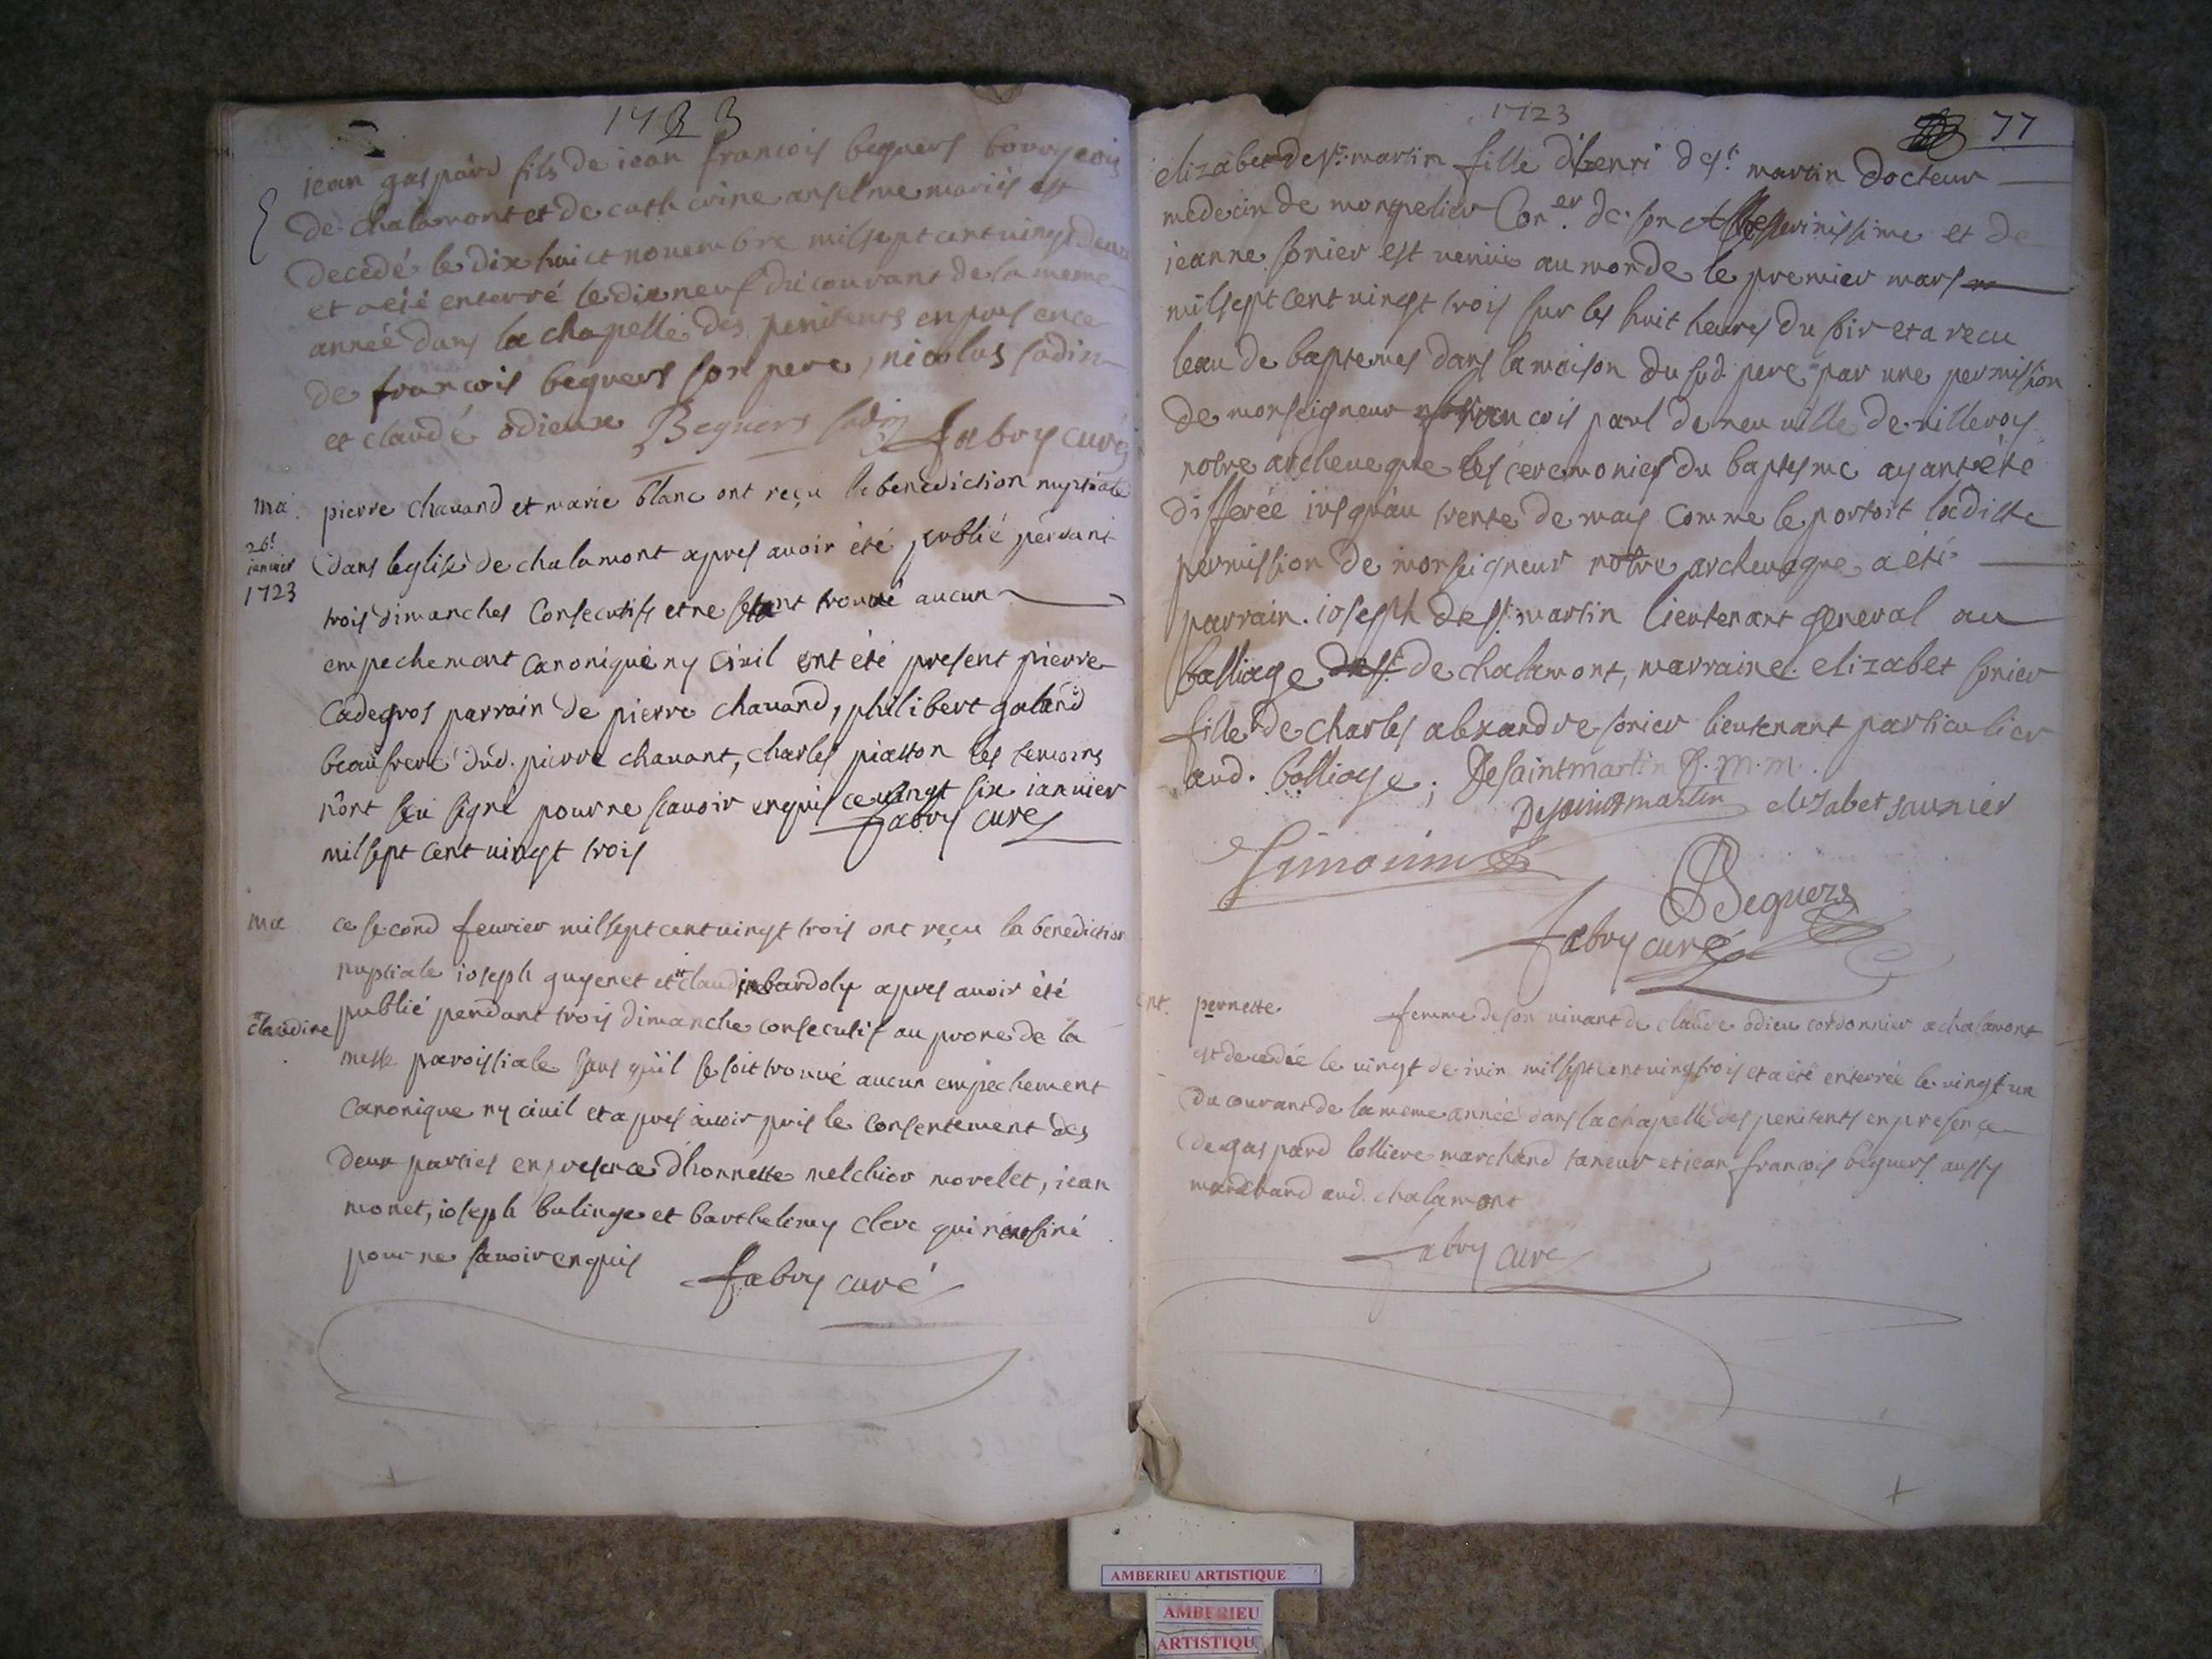 1723
jean gaspard fils de iean francois beguers bourgeois
de chalamont et de catherine anselme mariés est
decedé le dix huict nouembre mil sept cent uingt deux
et a été enterré le dix neuf du courant de la meme
année dans la chapelle des penitents en presence
de francois beguers son pere, nicolas sadin
et claude odieux Beguers sadin fabry curé
ma. pierre chauand et marie blanc ont reçu la benediction nuptiale
26e ianuier 1723 dans leglise de chalamont apres auoir été publié pendant
trois dimanches Consecutifs et ne setant trouué aucun
empechemant canonique ny ciuil ont été present pierre
Cadegros parrain de pierre chauand, philibert galand
beaufrere dud. pierre chauant, charles piatton les temoins
n'ont seu signé pour ne scauoir enquis ce uingt six ianuier
mil sept cent uingt trois fabry curé
ma ce second feurier mil sept cent uingt trois ont reçu la benediction
nuptiale ioseph guyenet et claudine bardoly apres auoir été
claudine publié pendant trois dimanche consecutif au prone de la
messe paroissiale sans qu'il se soit trouué aucun empechement
canonique ny ciuil et apres auoir pris le consentement des
deux parties en presence d'honnette melchior morelet, iean
monet, ioseph bulinge et barthelimy clerc qui n'ont siné
pour ne sauoir enquis fabry curé
1723
77
elizabet de st. martin fille d'henri de st. martin docteur
medecin de monpelier Con.er de son Altesse serinissime et de
ieanne sonier est uenüe au monde le premier mars
mil sept cent uingt trois sur les huit heures du soir et a recu
leau de baptemes dans la maison du sud. pere par une permission
de monseigneur francois paul de neuuille de uilleroy
notre archeueque les ceremonies du baptesme ayant été
differée iusqu'au trente de mars comme le portoit laditte
permission de monseigneur notre archeueque a été
parrain. ioseph de st. martin lieutenant general au
balliage de chalamont, marraine. elizabet sonier
fille de charles alexandre sonier lieutenant particulier
aud. balliage; Desaintmartin D. m. m.
Desaintmartin elizabet saunier
Simonin
Beguers
fabry curé
ent. pernette femme de son uiuant de claude odieu cordonnier a chalamont
est decedée le uingt de iuin mil sept cent uingt trois et a été enterrée le uingt un
du courant de la meme année dans la chapelle des penitents en presence
de gaspard lolliere marchand taneur et iean francois beguers aussy
marchand aud. chalamont
fabry curé
AMBERIEU ARTISTIQUE
AMBERIEU
ARTISTIQU